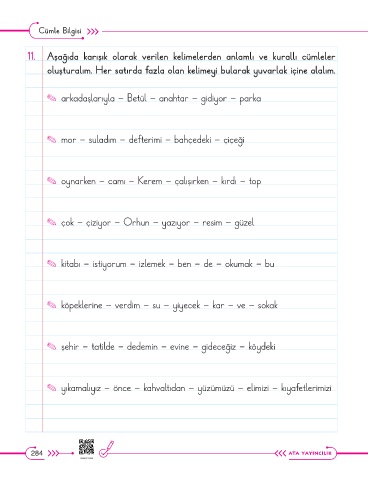 Cümle Bilgisi
11. Aşağıda karışık olarak verilen kelimelerden anlamlı ve kurallı cümleler
oluşturalım. Her satırda fazla olan kelimeyi bularak yuvarlak içine alalım.
arkadaşlarıyla – Betül – anahtar – gidiyor – parka
mor – suladım – defterimi – bahçedeki – çiçeği
oynarken – camı – Kerem – çalışırken – kırdı – top
çok – çiziyor – Orhun – yazıyor – resim – güzel
kitabı – istiyorum – izlemek – ben – de – okumak – bu
köpeklerine – verdim – su – yiyecek – kar – ve – sokak
şehir – tatilde – dedemin – evine – gideceğiz – köydeki
yıkamalıyız – önce – kahvaltıdan – yüzümüzü – elimizi – kıyafetlerimizi
284
ATA YAYINCILIK